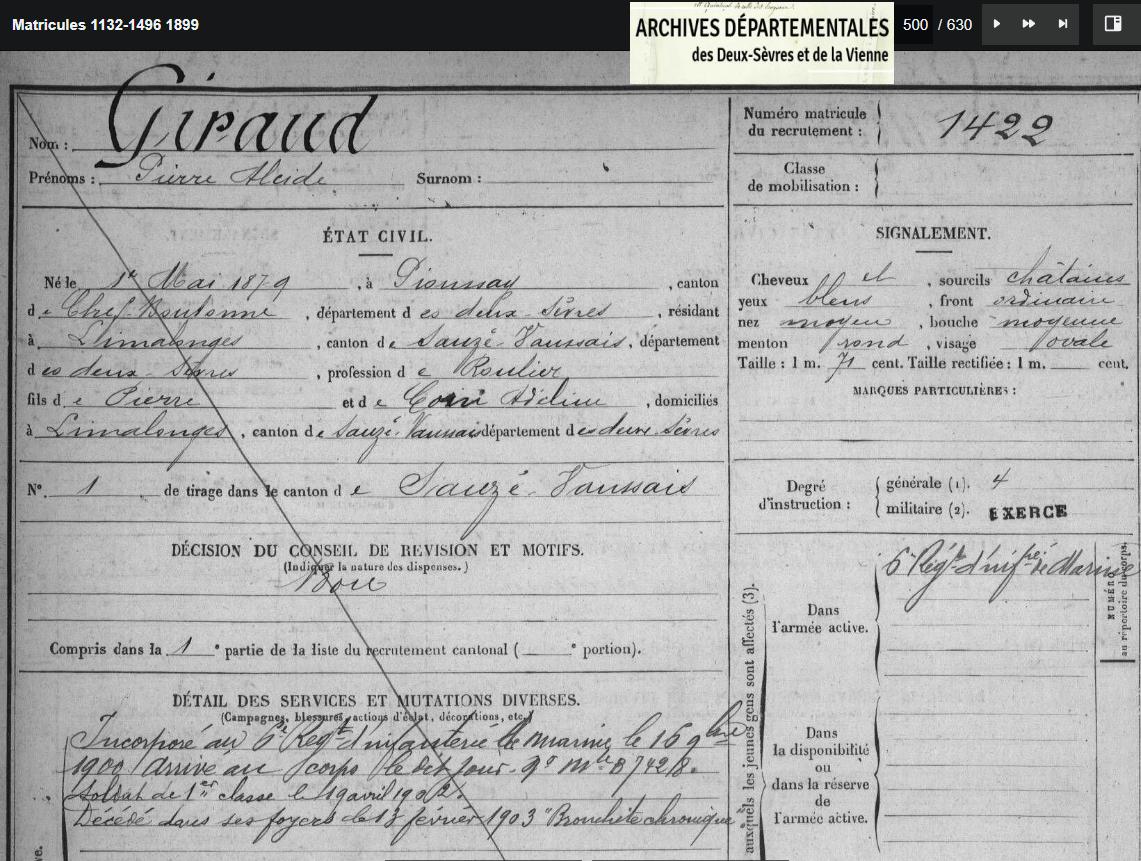 Matricules 1132-1496 1899
ARCHIVES DÉPARTEMENTALES
des Deux-Sèvres et de la Vienne
500 / 630
Nom : Giraud
Prénoms : Pierre Alcide Surnom :
Numéro matricule
du recrutement : 1422
Classe
de mobilisation :
ÉTAT CIVIL.
Né le 1er Mai 1879, à Pioussay, canton
de Chef-Boutonne, département des deux-Sèvres, résidant
à Limalonges, canton de Sauzé-Vaussais, département
des deux-Sèvres, profession de Roulier
fils de Pierre et de Adeline, domiciliés
à Limalonges, canton de Sauzé-Vaussais département des deux-Sèvres
N° 1 de tirage dans le canton de Sauzé-Vaussais
DÉCISION DU CONSEIL DE RÉVISION ET MOTIFS.
(Indiquer la nature des dispenses.)
Bon
Compris dans la 1e partie de la liste du recrutement cantonal ( e portion).
DÉTAIL DES SERVICES ET MUTATIONS DIVERSES.
(Campagnes, blessures, actions d'éclat, décorations, etc.)
Incorporé au 6e Régt d'infanterie de marine le 16 9bre
1900 arrivé au corps le dit jour. No Mle
Soldat de 1er classe le 19 avril 1902.
Décédé dans ses foyers le 13 février 1903 "Bronchite chronique"
SIGNALEMENT.
Cheveux et, sourcils châtains
yeux bleus, front ordinaire
nez moyen, bouche moyenne
menton rond, visage ovale
Taille : 1 m. 71 cent. Taille rectifiée : 1 m. cent.
MARQUES PARTICULIÈRES :
Degré
d'instruction :
générale (1). 4
militaire (2). EXERCE
auxquels les jeunes gens sont affectés (3).
Dans
l'armée active.
6e Régt d'inf.rie de Marine
NUMÉRO
au répertoire du corps.
Dans
la disponibilité
ou
dans la réserve
de
l'armée active.